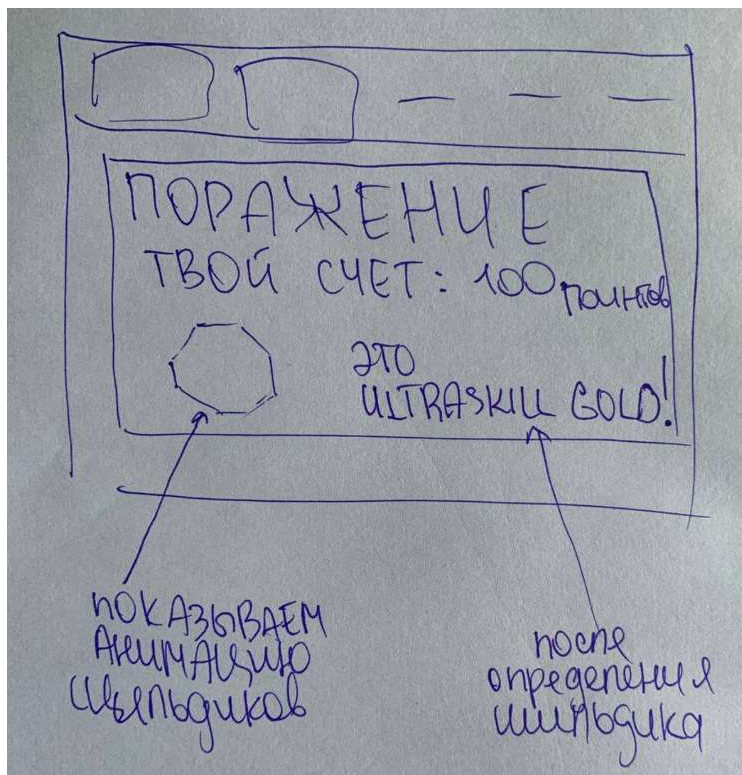 ПОРАЖЕНИЕ
ТВОЙ СЧЕТ: 100 поинтов
ЭТО
ULTRASKILL GOLD!
ПОКАЗЫВАЕМ
АНИМАЦИЮ
ШЫЛЬДИКОВ
после
определения
шильдика